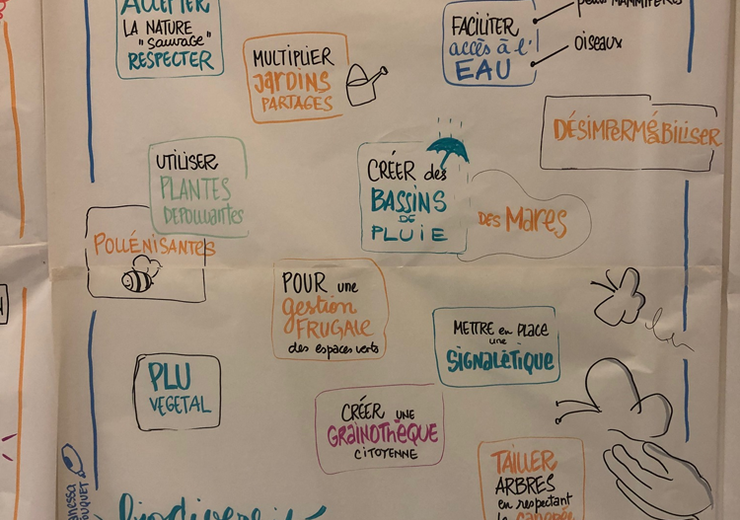 ACCEPTER
LA NATURE
"Sauvage"
RESPECTER
MULTIPLIER
JARDINS
PARTAGÉS
FACILITER
accès à l'
EAU
petits MAMMIFÈRES
OISEAUX
DÉSIMPERMÉABILISER
UTILISER
PLANTES
DÉPOLLUANTES
POLLÉNISANTES
CRÉER des
BASSINS
DE
PLUIE
DES MARES
POUR une
gestion
FRUGALE
des espaces verts
METTRE en PLACE
une
SIGNALÉTIQUE
PLU
VEGETAL
CRÉER UNE
GRAINOTHÈQUE
CITOYENNE
TAILLER
ARBRES
en respectant
la canopée